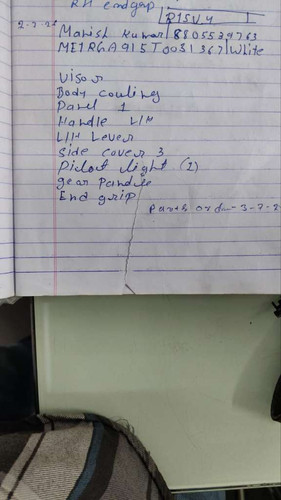 RH endgrip
R15V4 1
Manish Kumar 8805534763
ME1RGA915T0031367 White
Visor
Body couling
Panel 1
Handle L/H
L/H Lever
Side cover 3
Pidout light (2)
gear Pandle
End grip
Parts order - 3-7-2